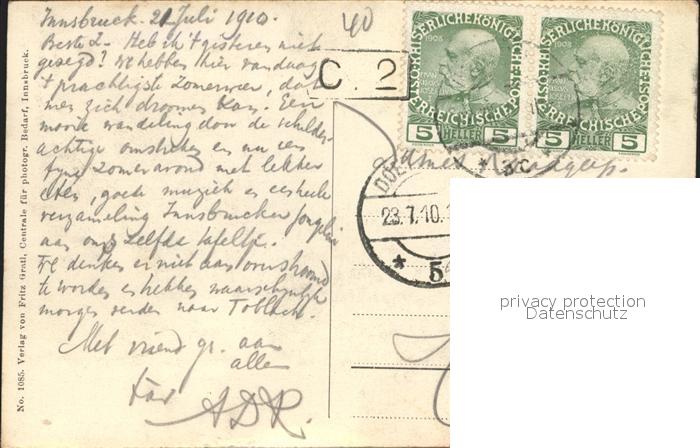 Innsbruck. 21 Juli 1910.
40
Beste L – Heb ik 't gisteren niet
gezegd? We hebben hier vandaag
't prachtigste zomerweer, dat
men zich droomen kan. Een
mooie wandeling door de schilder-
achtige omstreken en nu een
fijne zomeravond met lekker
eten, goede muziek en eesheele
verzameling Innsbrucker
aan onze zelfde tafeltje.
We denken er niet aan
te worden en hebben waarschijnlijk
morgen verder naar Toblach.
Met vriend. gr. aan
allen
ADR.
No. 1085. Verlag von Fritz Gratl, Centrale für photogr. Bedarf, Innsbruck.
C. 2
KAISERLICHE KÖNIGLICHE
1908
FRANZ JOSEF I
ÖSTERREICHISCHE POST
5 HELLER 5
KAISERLICHE KÖNIGLICHE
1908
ÖSTERREICHISCHE POST
5 HELLER 5
23.7.10.
* 5
privacy protection
Datenschutz